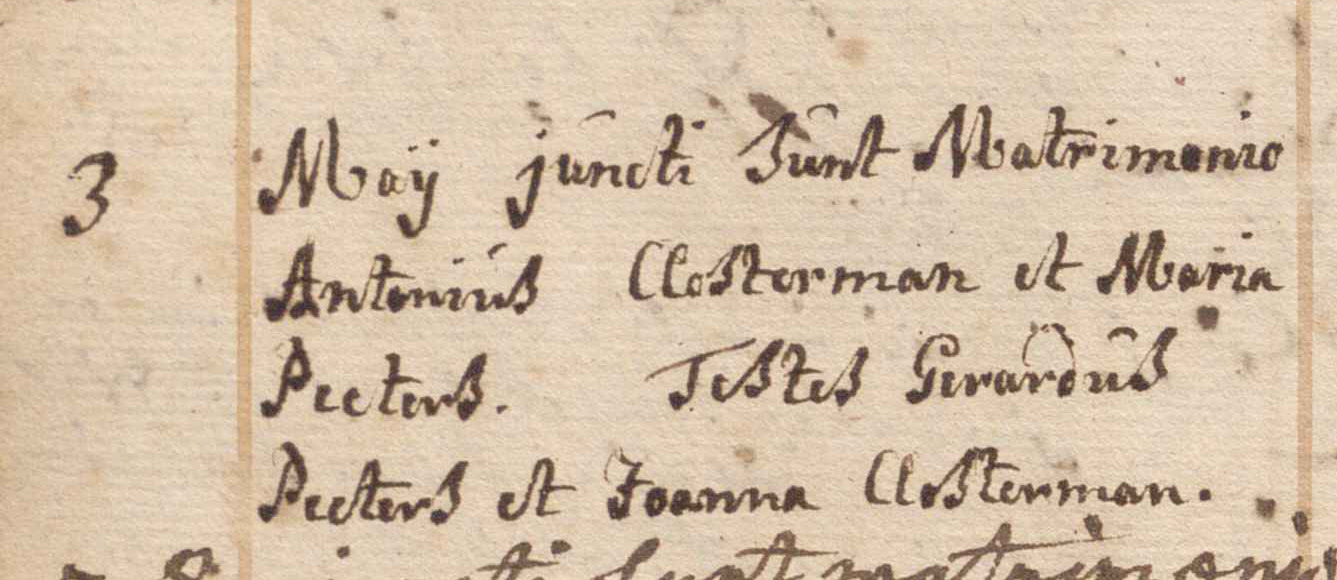 3 Maÿ juncti sunt Matrimonio
Antonius Closterman et Maria
Peeters. Testes Gerardus
Peeters et Joanna Closterman.
juncti sunt matrimonio